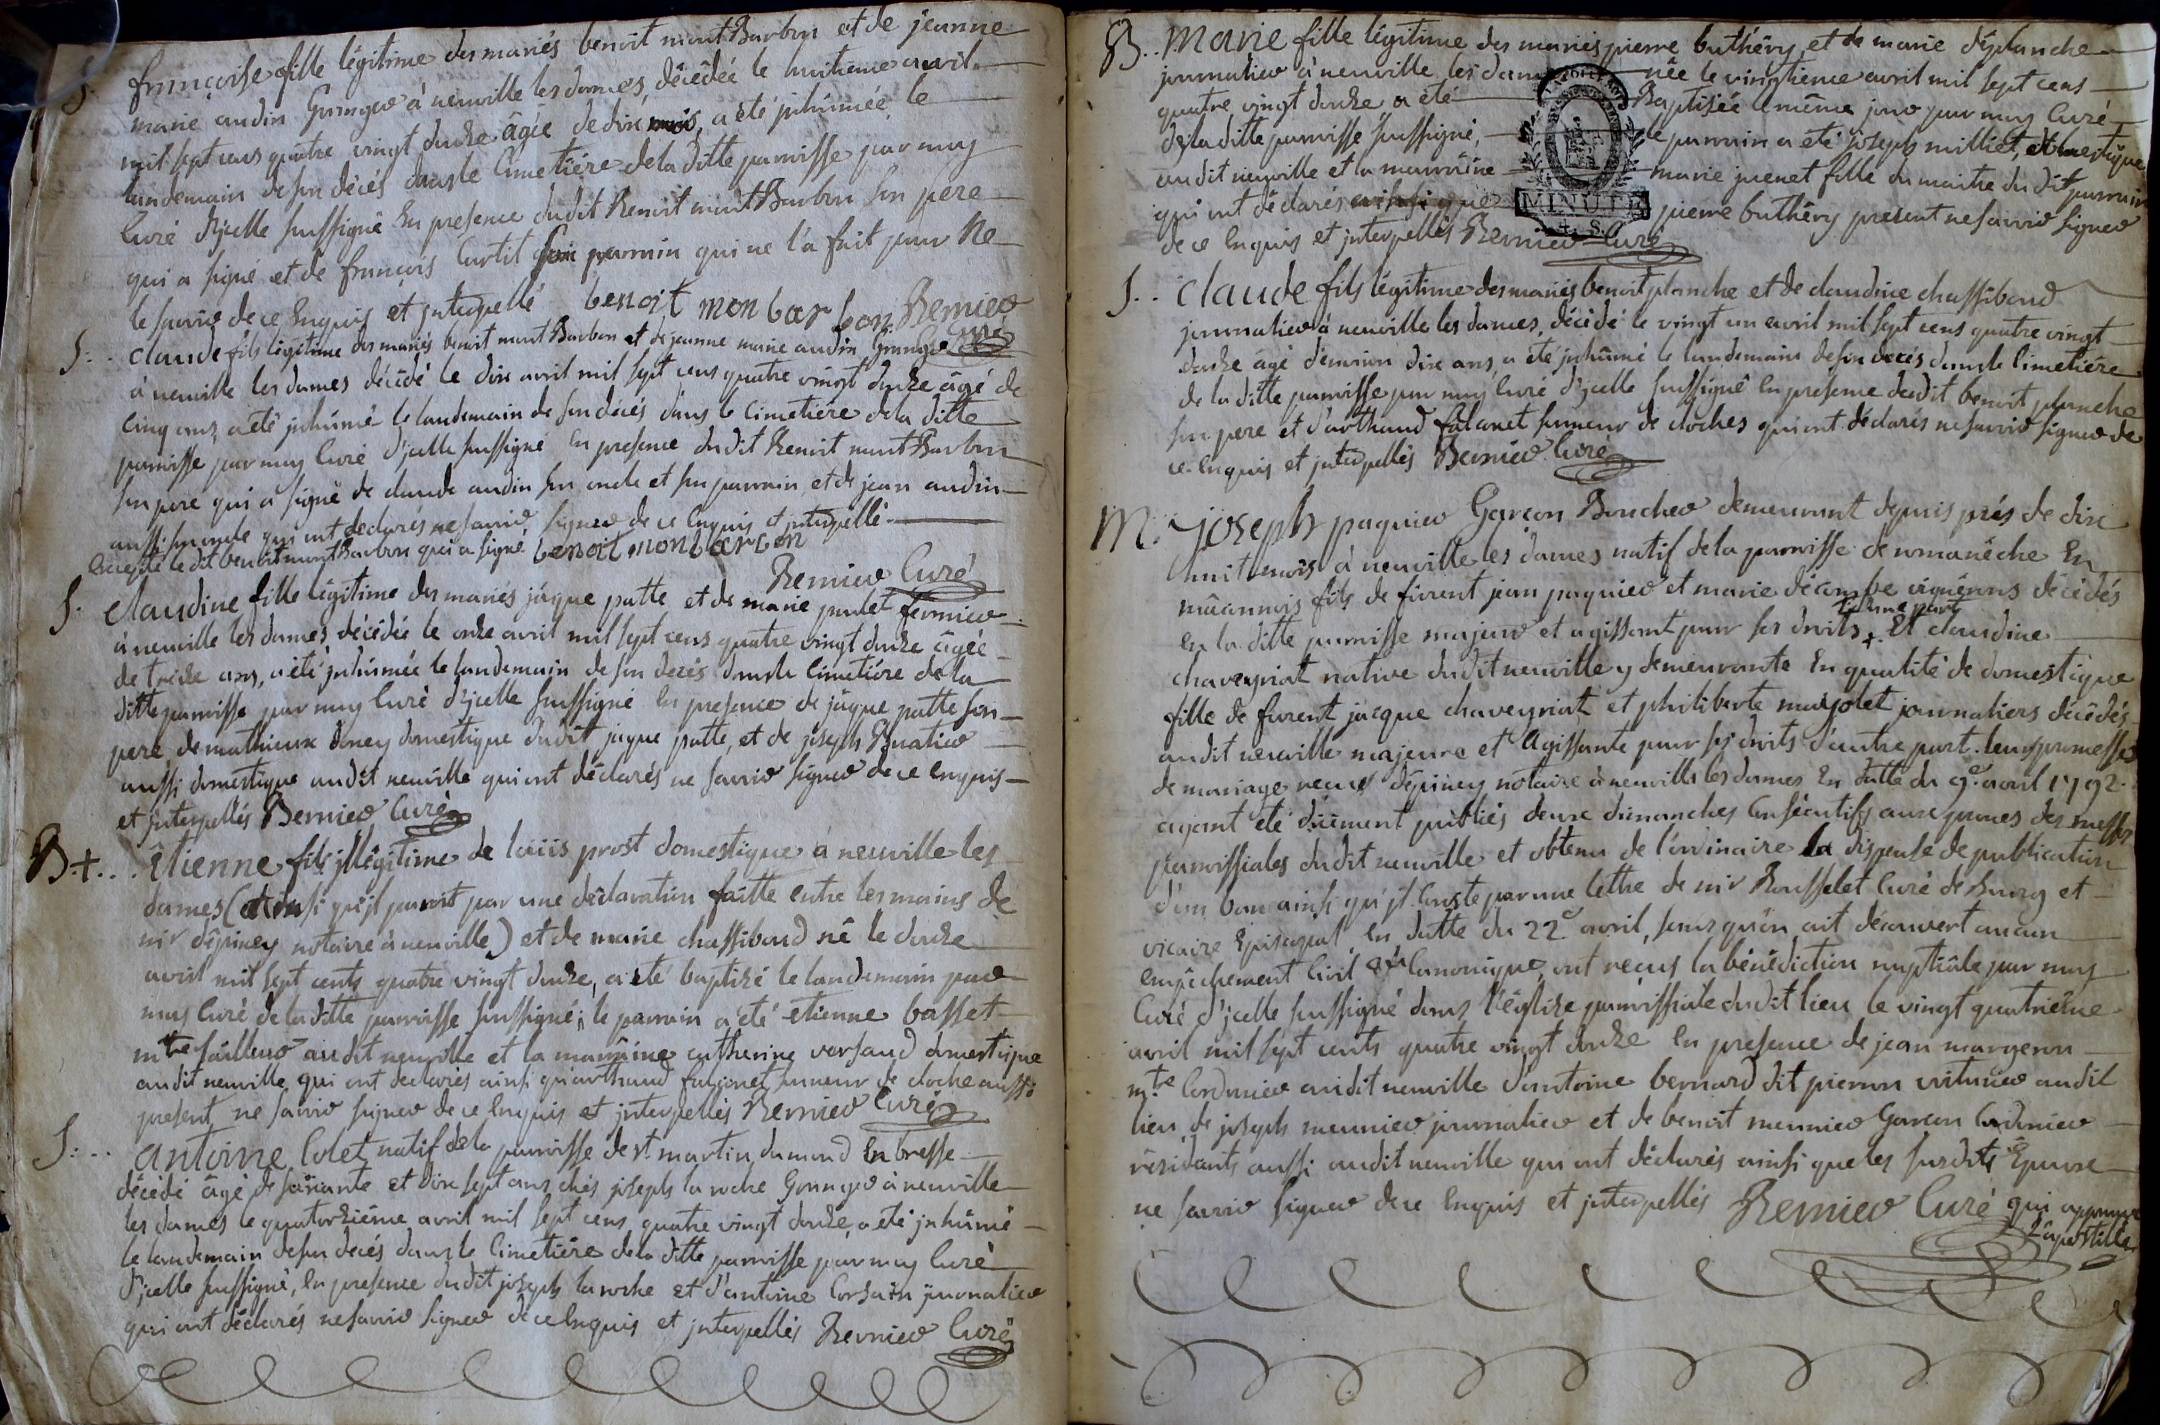 S. françoise fille légitime des mariés benoit montBarbon et de jeanne
marie audin Granger à neuville les dames, décédée le huitieme avril
mil sept cens quatre vingt douze âgée de dix mois, a été juhumée le
landemain de son décés dans le Cimetiére de la ditte parroisse par moy
Curé d'jcelle soussigné En presence dudit Benoit montBarbon son pere
qui a signé et de françois Curtil son parrain qui ne l'a fait pour Ne
le savoir de ce Enquis et jnterpellé benoit mon bar bon Bernier
Curé
S. claude fils légitime des mariés benoit mont Barbon et de jeanne marie audin Granger
à neuville les dames décédé le dix avril mil sept cens quatre vingt douze âgé de
cinq ans, a été juhumé le landemain de son décés dans le Cimetiére de la ditte
parroisse par moy Curé d'jcelle soussigné En presence dudit Benoit mont Barbon
son pere qui a signé de claude audin son oncle et son parrain, et de jean audin
aussi son oncle qui ont declarés ne savoir signer de ce Enquis et jnterpellé
Excepté le dit benoit mont Barbon qui a signé benoit mon bar bon
Bernier Curé
S. claudine fille légitime des mariés jâque patte et de marie pulet fermier
à neuville les dames décédée le onze avril mil sept cens quatre vingt douze âgée
de treize ans, a été juhumée le landemain de son decés dans le Cimetiére de la
ditte parroisse par moy Curé d'jcelle soussigné En presence de jâque patte son
pere de mathieux doney domestique dudit jaque patte, et de joseph Buatier
aussi domestique audit neuville qui ont déclarés ne savoir signer de ce Enquis
et jnterpellés Bernier Curé
B+... étienne fils jllégitime de loüis prost domestique à neuville les
dames (ainsi qu'jl paroit par une déclaration faitte entre les mains de
mr dépiney notaire à neuville) et de marie chassiboud né le douze
avril mil sept cents quatre vingt douze, a été baptisé le landemain par
moy Curé de la ditte parroisse soussigné; le parrain a été etienne basset
mtre tailleur audit neuville et la marraine catherine versaud domestique
audit neuville, qui ont declarés ainsi qu'arthaud falconet sonneur de cloche aussi
present ne savoir signer de ce Enquis et jnterpellés Bernier Curé
S... antoine Colet natif de la parroisse de st martin du mond En bresse
décédé âgé de soixante et dix sept ans chés joseph la roche Granger à neuville
les dames le quatorziéme avril mil sept cens quatre vingt douze, a été juhumé
le landemain de son decés dans le Cimetiére de la ditte parroisse par moy Curé
d'jcelle soussigné, En presence dudit joseph la roche et d'antoine Corsain journalier
qui ont déclarés ne savoir signer de ce Enquis et jnterpellés Bernier Curé
B.. Marie fille légitime des mariés pierre buthéry et de marie déplanche
journalier à neuville les dames née le vingtieme avril mil sept cens
quatre vingt douze a été Baptisée le même jour par moy Curé
de la ditte parroisse soussigné, le parrain a été joseph milliet, domestique
audit neuville et la marraine marie juenet fille du maitre du dit parrain
qui ont déclarés pierre buthéry present ne savoir signer
de ce Enquis et jnterpellés Bernier Curé
MINUTE
4. S.
S.. claude fils légitime des mariés benoit planche et de claudine chassiboud
journalier à neuville les dames, décédé le vingt un avril mil sept cens quatre vingt
douze âgé d'environ dix ans, a été juhumé le landemain de son decés dans le Cimetiére
de la ditte parroisse par moy Curé d'jcelle soussigné En presence dudit benoit planche
son pere et d'arthaud falconet sonneur de cloches qui ont déclarés ne savoir signer de
ce Enquis et jnterpellés Bernier Curé
M. joseph paquier Garcon Boucher demeurant depuis prés de dix
huit mois à neuville les dames natif de la parroisse de romanêche En
mâconnois fils de furent jean paquier et marie décombe vignérons décédés
en la ditte parroisse majeur et agissant pour ses droits + d'une part Et claudine
chaveyriat native dudit neuville y demeurante En qualité de domestique
fille de furent jacque chaveyriat et philiberte maijolet journaliers décédés
audit neuville majeure et Agissante pour ses droits d'autre part. leurs promesses
de mariage recues dépiney notaire à neuville les dames En datte du 9e avril 1792.
ayant été düement publiés deux dimanches Consécutifs aux prones des messes
parroissiales dudit neuville et obtenu de l'ordinaire la dispense de publication
d'un ban ainsi qu'jl Conste par une lettre de mr Rousselet Curé de Bourg et
vicaire Episcopal En datte du 22e avril, sans qu'on ait découvert aucun
empêchement Civil ou Canonique, ont recus la bénédiction nuptiâle par moy
Curé d'jcelle soussigné dans l'église parroissiale dudit lieu le vingt quatriéme
avril mil sept cents quatre vingt douze En presence de jean margeron
mtre Cordonier audit neuville d'antoine bernard dit pieron voiturier audit
lieu, de joseph meunier journalier et de benoit meunier Garcon Cordonier
residants aussi audit neuville qui ont déclarés ainsi que les susdits Epoux
ne savoir signer de ce Enquis et jnterpellés Bernier Curé qui approuve
L'apostille